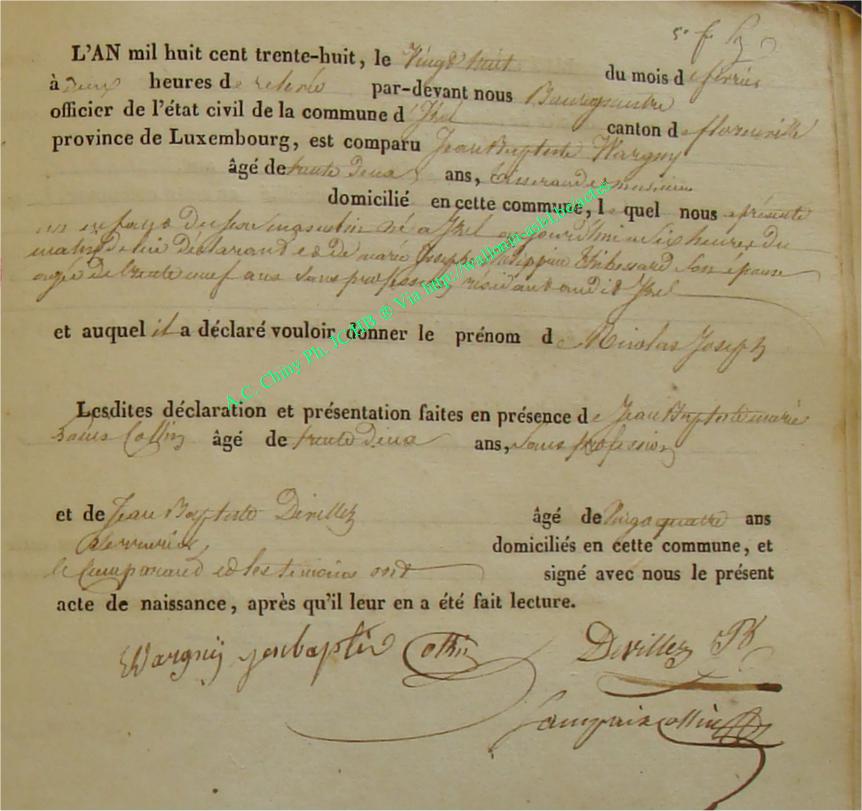 L'AN mil huit cent trente-huit, le vingt huit du mois de fevrier
à deux heures de relevée par-devant nous Bourguenon
officier de l'état civil de la commune d'Izel canton de florenville
province de Luxembourg, est comparu Jean Baptiste Wargny
âgé de trente Deux ans, tisserand et
domicilié en cette commune, lequel nous a présenté
un enfant du sexe masculin né à Izel aujourd'hui à six heures du
matin, de lui declarant et de marie Joseph son épouse
agée de trente neuf ans sans profession, résidant audit Izel
et auquel il a déclaré vouloir donner le prénom de Nicolas Joseph
Lesdites déclaration et présentation faites en présence de Jean Baptiste marie
Louis Collin âgé de trente Deux ans, sans profession
et de Jean Baptiste Devillez âgé de vingt quatre ans
Serrurier, domiciliés en cette commune, et
le Comparant et les temoins ont signé avec nous le présent
acte de naissance, après qu'il leur en a été fait lecture.
Wargny jenbaptis Collin Devillez JB
A.C. Chiny Ph. JCMB @ Via http://wallonia-asbl.be/actes